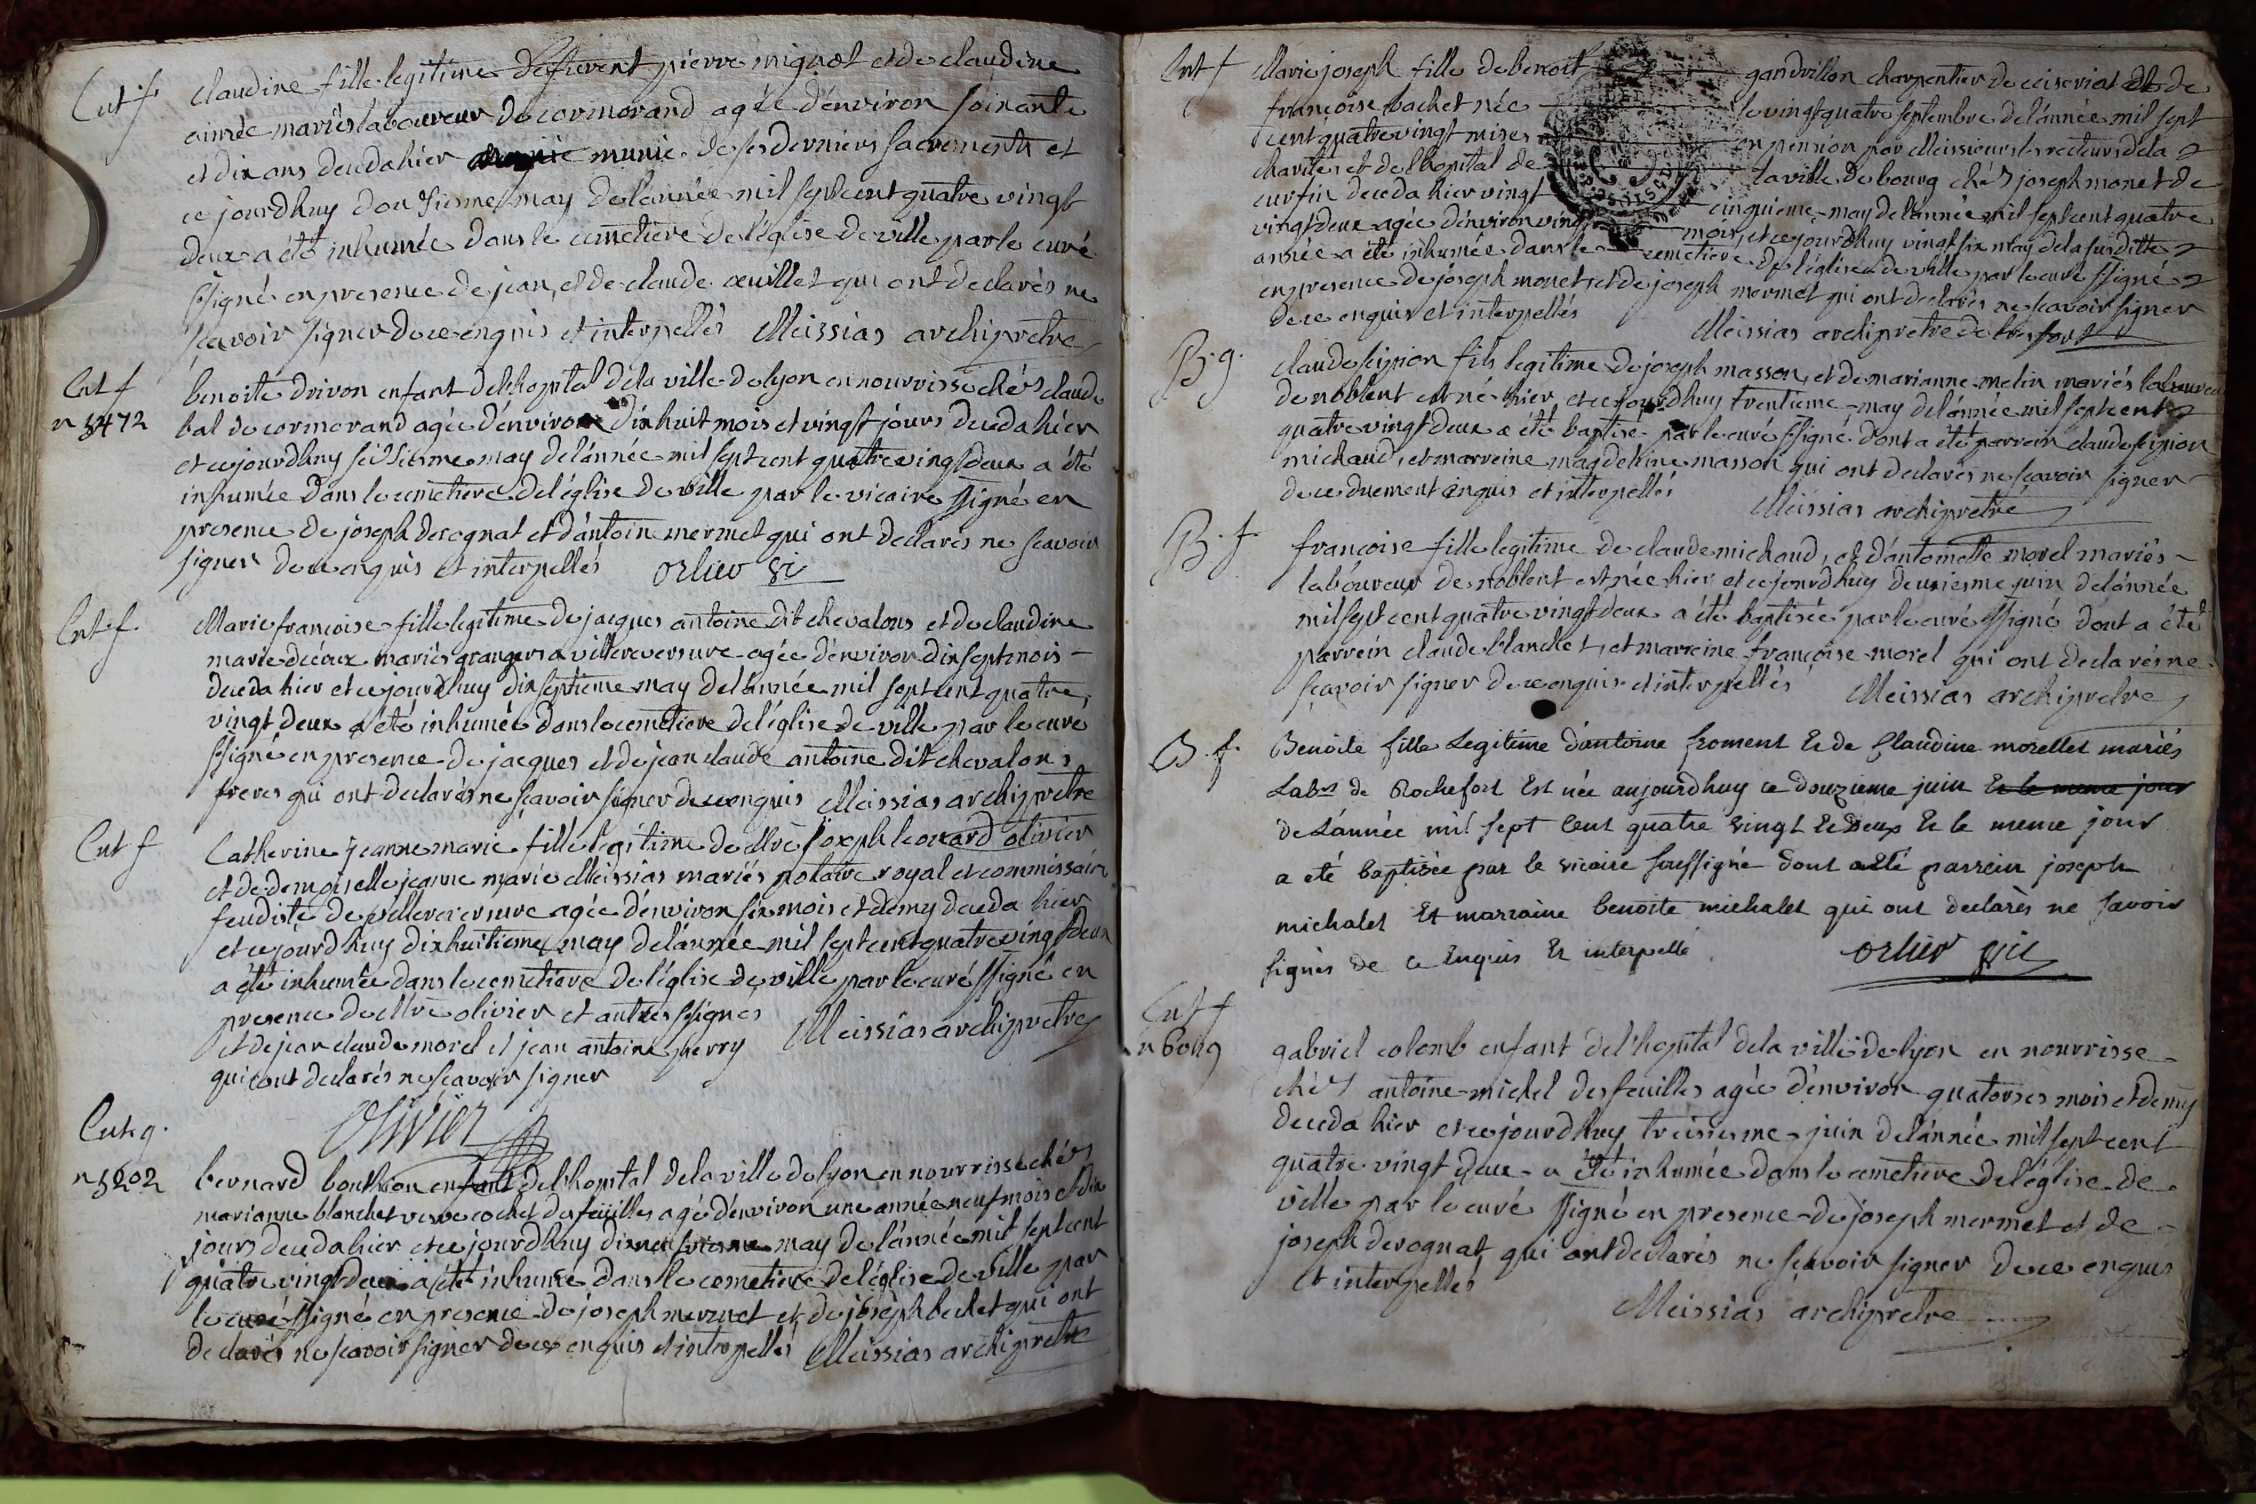 Ent f
claudine fille legitime defuent pierre mignot et de claudine
aimée mariés laboureur de cormorand agée d'environ soixante
et dix ans deceda hier munie de ses derniers sacrements et
ce jourdhuy douzieme may de l'année mil sept cent quatre vingt
deux a été inhumée dans le cemetiere de l'église de ville par le curé
ssigné en presence de jean, et de claude œuillet qui ont declarés ne
scavoir signer de ce enquis et interpellés Meissias archipretre
Ent f
n 5472
benoite drivon enfant del'hopital de la ville de lyon en nourrisse chés claude
bal de cormorand agée d'environ dixhuit mois et vingt jours deceda hier
et ce jourdhuy seizieme may de l'année mil sept cent quatre vingt deux a été
inhumée dans le cemetiere de l'église de ville par le vicaire ssigné en
presence de joseph decognat et d'antoine mermet qui ont declarés ne scavoir
signer de ce enquis et interpellés orlier vi
Ent f.
Marie francoise fille legitime de jacques antoine dit chevalons et de claudine
marie mariés grangers a villereversure agée d'environ dixsept mois
deceda hier et ce jourdhuy dixseptieme may de l'année mil sept cent quatre
vingt deux a été inhumée dans le cemetiere de l'église de ville par le curé
ssigné en presence de jacques et de jean claude antoine dit chevalons
freres qui ont declarés ne scavoir signer de ce enquis Meissias archipretre
Ent f
Catherine jeanne marie fille legitime de Mtre joseph leonard olivier
et de demoiselle jeanne marie Meissias mariés notaire royal et commissaire
feudiste de villereversure agée d'environ six mois et demy deceda hier
et ce jourdhuy dixhuitieme may de l'année mil sept cent quatre vingt deux
a été inhumée dans le cemetiere de l'église de ville par le curé ssigné en
presence de Mtre olivier et autres ssignés Meissias archipretre
et de jean claude morel et jean antoine perry
qui ont declarés ne scavoir signer
Olivier
Ent. g.
n 5202
bernard bonthon enfant del'hopital de la ville de lyon en nourrisse chés
marianne blanchet veuve cochet desfeuilles agé d'environ une année neuf mois et dix
jours deceda hier et ce jourdhuy dixneufvieme may de l'année mil sept cent
quatre vingt deux a été inhumé dans le cemetiere de l'église de ville par
le curé ssigné en presence de joseph mermet et de joseph bechet qui ont
declarés ne scavoir signer de ce enquis et interpellés Meissias archipretre
Ent f
Marie joseph fille de benoit gandvillon charpentier de ceiseriat et de
françoise bachet née le vingt quatre septembre de l'année mil sept
cent quatre vingt mises en pension par Messieurs les recteurs de la
charité et de l'hopital de la ville de bourg chés joseph monet de
curfin deceda hier vingt cinquieme may de l'année mil sept cent quatre
vingt deux agée d'environ vingt mois, et ce jourdhuy vingt six may de la susditte
année a été inhumée dans le cemetiere de l'église de ville par le curé ssigné
en presence de joseph monet, et de joseph mermet qui ont declarés ne scavoir signer
de ce enquis et interpellés Meissias archipretre de tresfort
B. g.
claude scipion fils legitime de joseph masson, et de marianne melin mariés laboureur
de noblent est né hier et ce jourdhuy trentieme may de l'année mil sept cent
quatre vingt deux a été baptisé par le curé ssigné dont a été parrein claude scipion
michaud, et marreine magdelaine masson qui ont declarés ne scavoir signer
de ce duement enquis et interpellés Meissias archipretre
B. f.
françoise fille legitime de claude michaud, et d'antoinette morel mariés
laboureur de noblent est née hier et ce jourdhuy deuxiesme juin de l'année
mil sept cent quatre vingt deux a été baptisée par le curé ssigné dont a été
parrein claude blanchet, et marreine françoise morel qui ont declarés ne
scavoir signer de ce enquis et interpellés Meissias archipretre
B. f.
Benoite fille Legitime d'antoine froment Et de Claudine morellet mariés
Labrs de Rochefort Est née aujourdhuy ce douzieme juin Et le meme jour
de L'année mil sept Cent quatre vingt Et deux Et le meme jour
a eté baptisée par le vicaire soussigné dont a eté parrein joseph
michalet Et marraine benoite michalet qui ont declarès ne savoir
signès de ce Enquis Et interpellé orlier vic
Ent f
n 6019
gabriel colomb enfant del'hopital de la ville de lyon en nourrisse
chés antoine michel desfeuilles agée d'environ quatorzes mois et demy
deceda hier et ce jourdhuy treiziesme juin de l'année mil sept cent
quatre vingt deux a été inhumée dans le cemetiere de l'église de
ville par le curé ssigné en presence de joseph mermet et de
joseph decognat qui ont declarés ne scavoir signer de ce enquis
et interpellés
Meissias archipretre